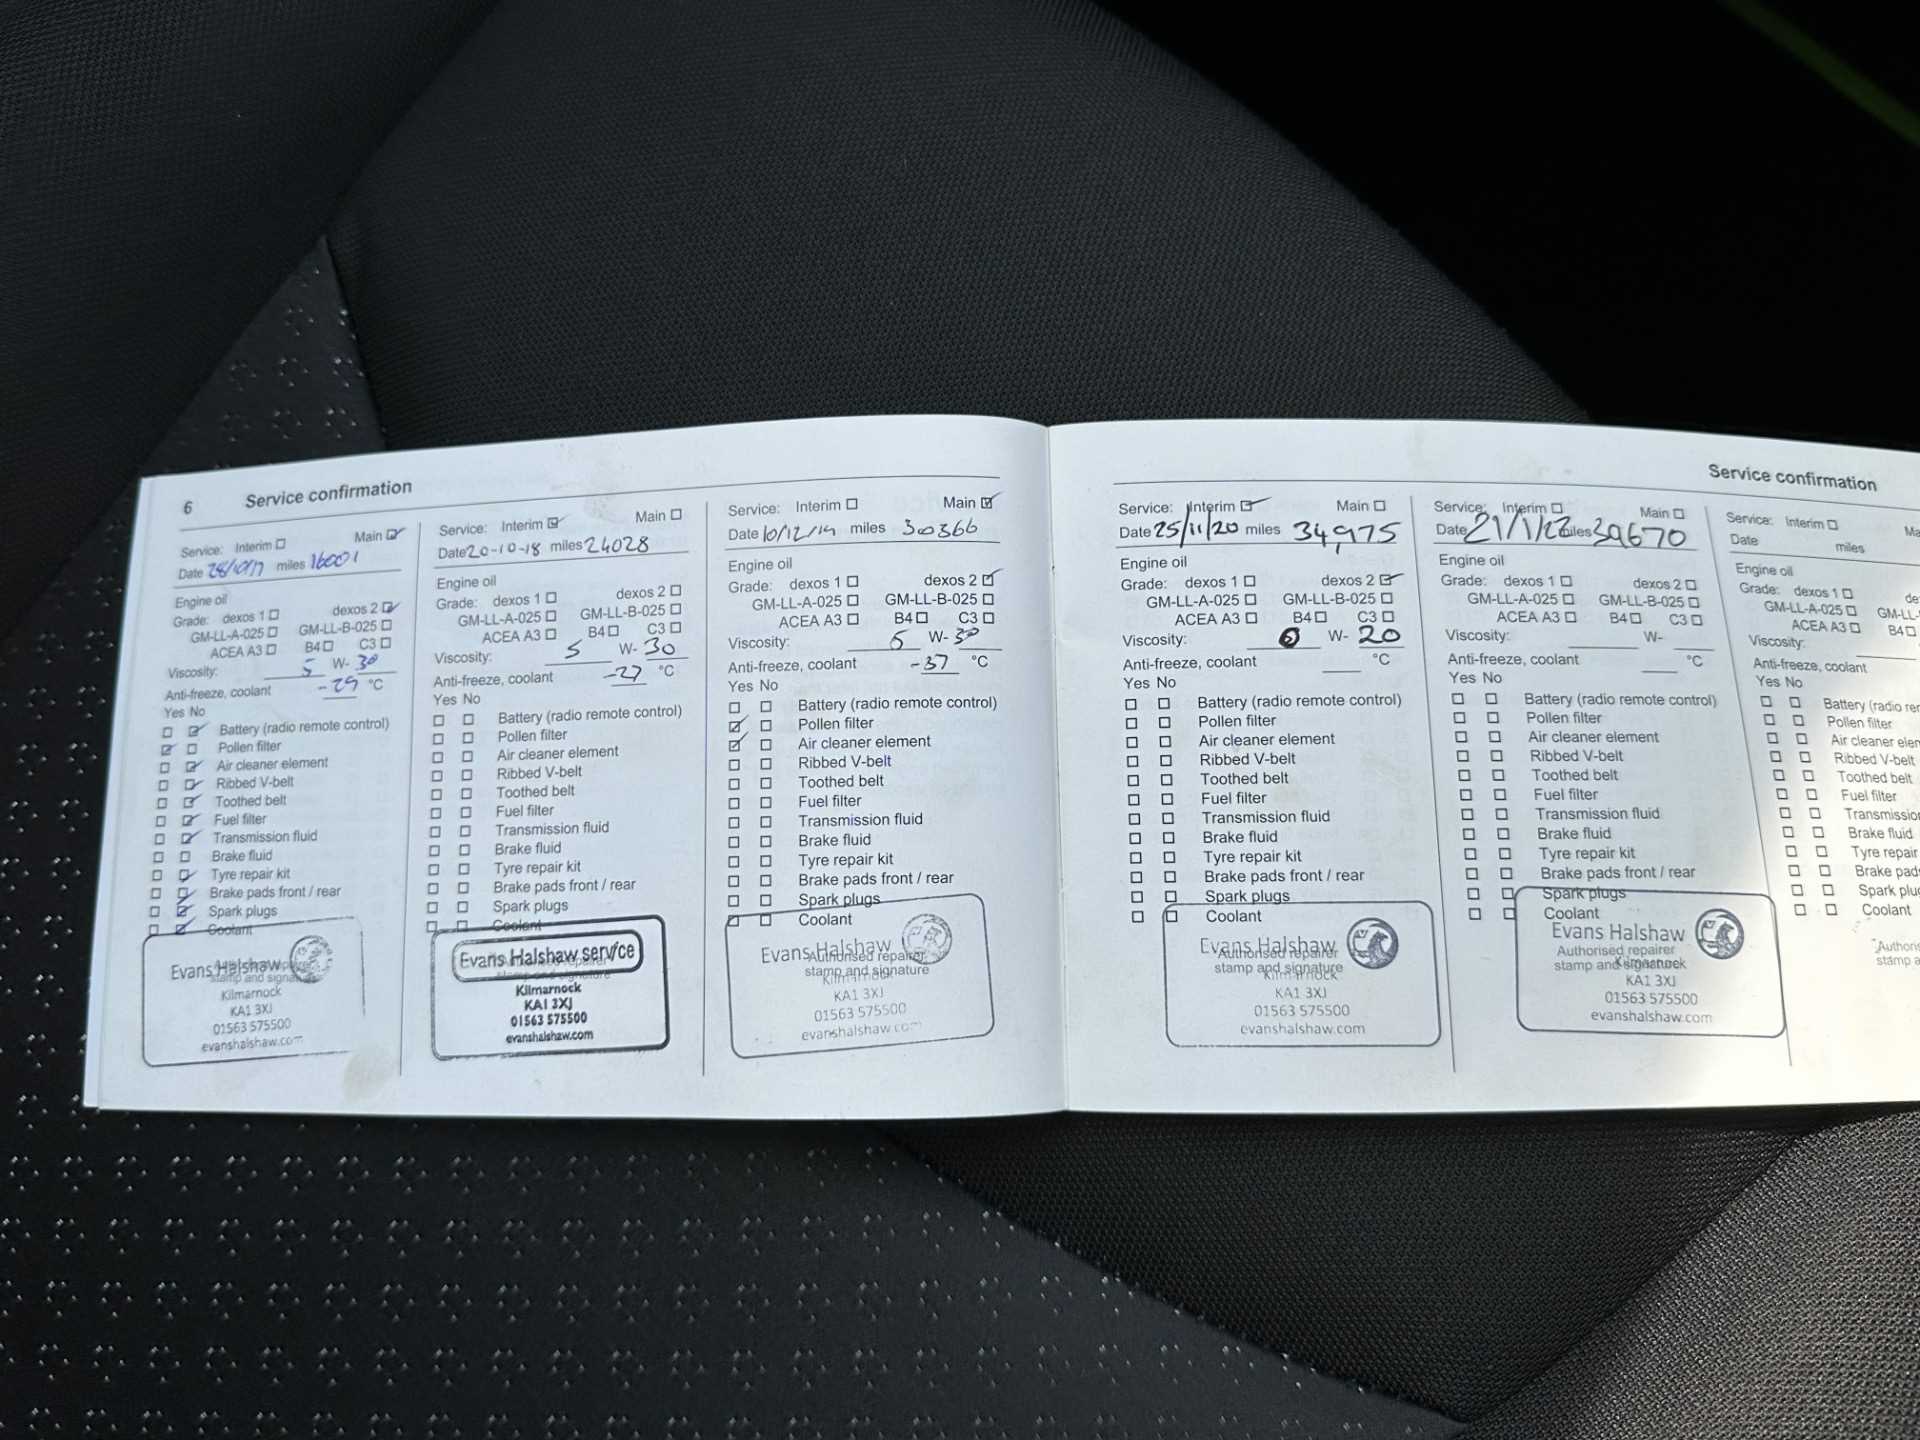 6 Service confirmation
Service: Interim Main
Date 28/10/17 miles 16001
Engine oil
Grade: dexos 1 dexos 2
GM-LL-A-025 GM-LL-B-025
ACEA A3 B4 C3
Viscosity: 5 W- 30
Anti-freeze, coolant -29 °C
Yes No
Battery (radio remote control)
Pollen filter
Air cleaner element
Ribbed V-belt
Toothed belt
Fuel filter
Transmission fluid
Brake fluid
Tyre repair kit
Brake pads front / rear
Spark plugs
Coolant
Evans Halshaw
stamp and signature
Kilmarnock
KA1 3XJ
01563 575500
evanshalshaw.com
Service: Interim Main
Date 20-10-18 miles 24028
Engine oil
Grade: dexos 1 dexos 2
GM-LL-A-025 GM-LL-B-025
ACEA A3 B4 C3
Viscosity: 5 W- 30
Anti-freeze, coolant -27 °C
Yes No
Battery (radio remote control)
Pollen filter
Air cleaner element
Ribbed V-belt
Toothed belt
Fuel filter
Transmission fluid
Brake fluid
Tyre repair kit
Brake pads front / rear
Spark plugs
Coolant
Evans Halshaw service
Authorised repairer
stamp and signature
Kilmarnock
KA1 3XJ
01563 575500
evanshalshaw.com
Service: Interim Main
Date 10/12/19 miles 30366
Engine oil
Grade: dexos 1 dexos 2
GM-LL-A-025 GM-LL-B-025
ACEA A3 B4 C3
Viscosity: 5 W- 30
Anti-freeze, coolant -37 °C
Yes No
Battery (radio remote control)
Pollen filter
Air cleaner element
Ribbed V-belt
Toothed belt
Fuel filter
Transmission fluid
Brake fluid
Tyre repair kit
Brake pads front / rear
Spark plugs
Coolant
Evans Halshaw
Authorised repairer
stamp and signature
Kilmarnock
KA1 3XJ
01563 575500
evanshalshaw.com
Service confirmation
Service: Interim Main
Date 25/11/20 miles 34,975
Engine oil
Grade: dexos 1 dexos 2
GM-LL-A-025 GM-LL-B-025
ACEA A3 B4 C3
Viscosity: 0 W- 20
Anti-freeze, coolant °C
Yes No
Battery (radio remote control)
Pollen filter
Air cleaner element
Ribbed V-belt
Toothed belt
Fuel filter
Transmission fluid
Brake fluid
Tyre repair kit
Brake pads front / rear
Spark plugs
Coolant
Evans Halshaw
Authorised repairer
stamp and signature
Kilmarnock
KA1 3XJ
01563 575500
evanshalshaw.com
Service: Interim Main
Date miles 39670
Engine oil
Grade: dexos 1 dexos 2
GM-LL-A-025 GM-LL-B-025
ACEA A3 B4 C3
Viscosity: W-
Anti-freeze, coolant °C
Yes No
Battery (radio remote control)
Pollen filter
Air cleaner element
Ribbed V-belt
Toothed belt
Fuel filter
Transmission fluid
Brake fluid
Tyre repair kit
Brake pads front / rear
Spark plugs
Coolant
Evans Halshaw
Authorised repairer
stamp and signature
Kilmarnock
KA1 3XJ
01563 575500
evanshalshaw.com
Service: Interim Ma
Date miles
Engine oil
Grade: dexos 1 de
GM-LL-A-025 GM-L
ACEA A3 B4
Viscosity:
Anti-freeze, coolant
Yes No
Battery (radio rer
Pollen filter
Air cleaner elem
Ribbed V-belt
Toothed belt
Fuel filter
Transmissio
Brake fluid
Tyre repair
Brake pads
Spark plug
Coolant
Authoris
stamp a